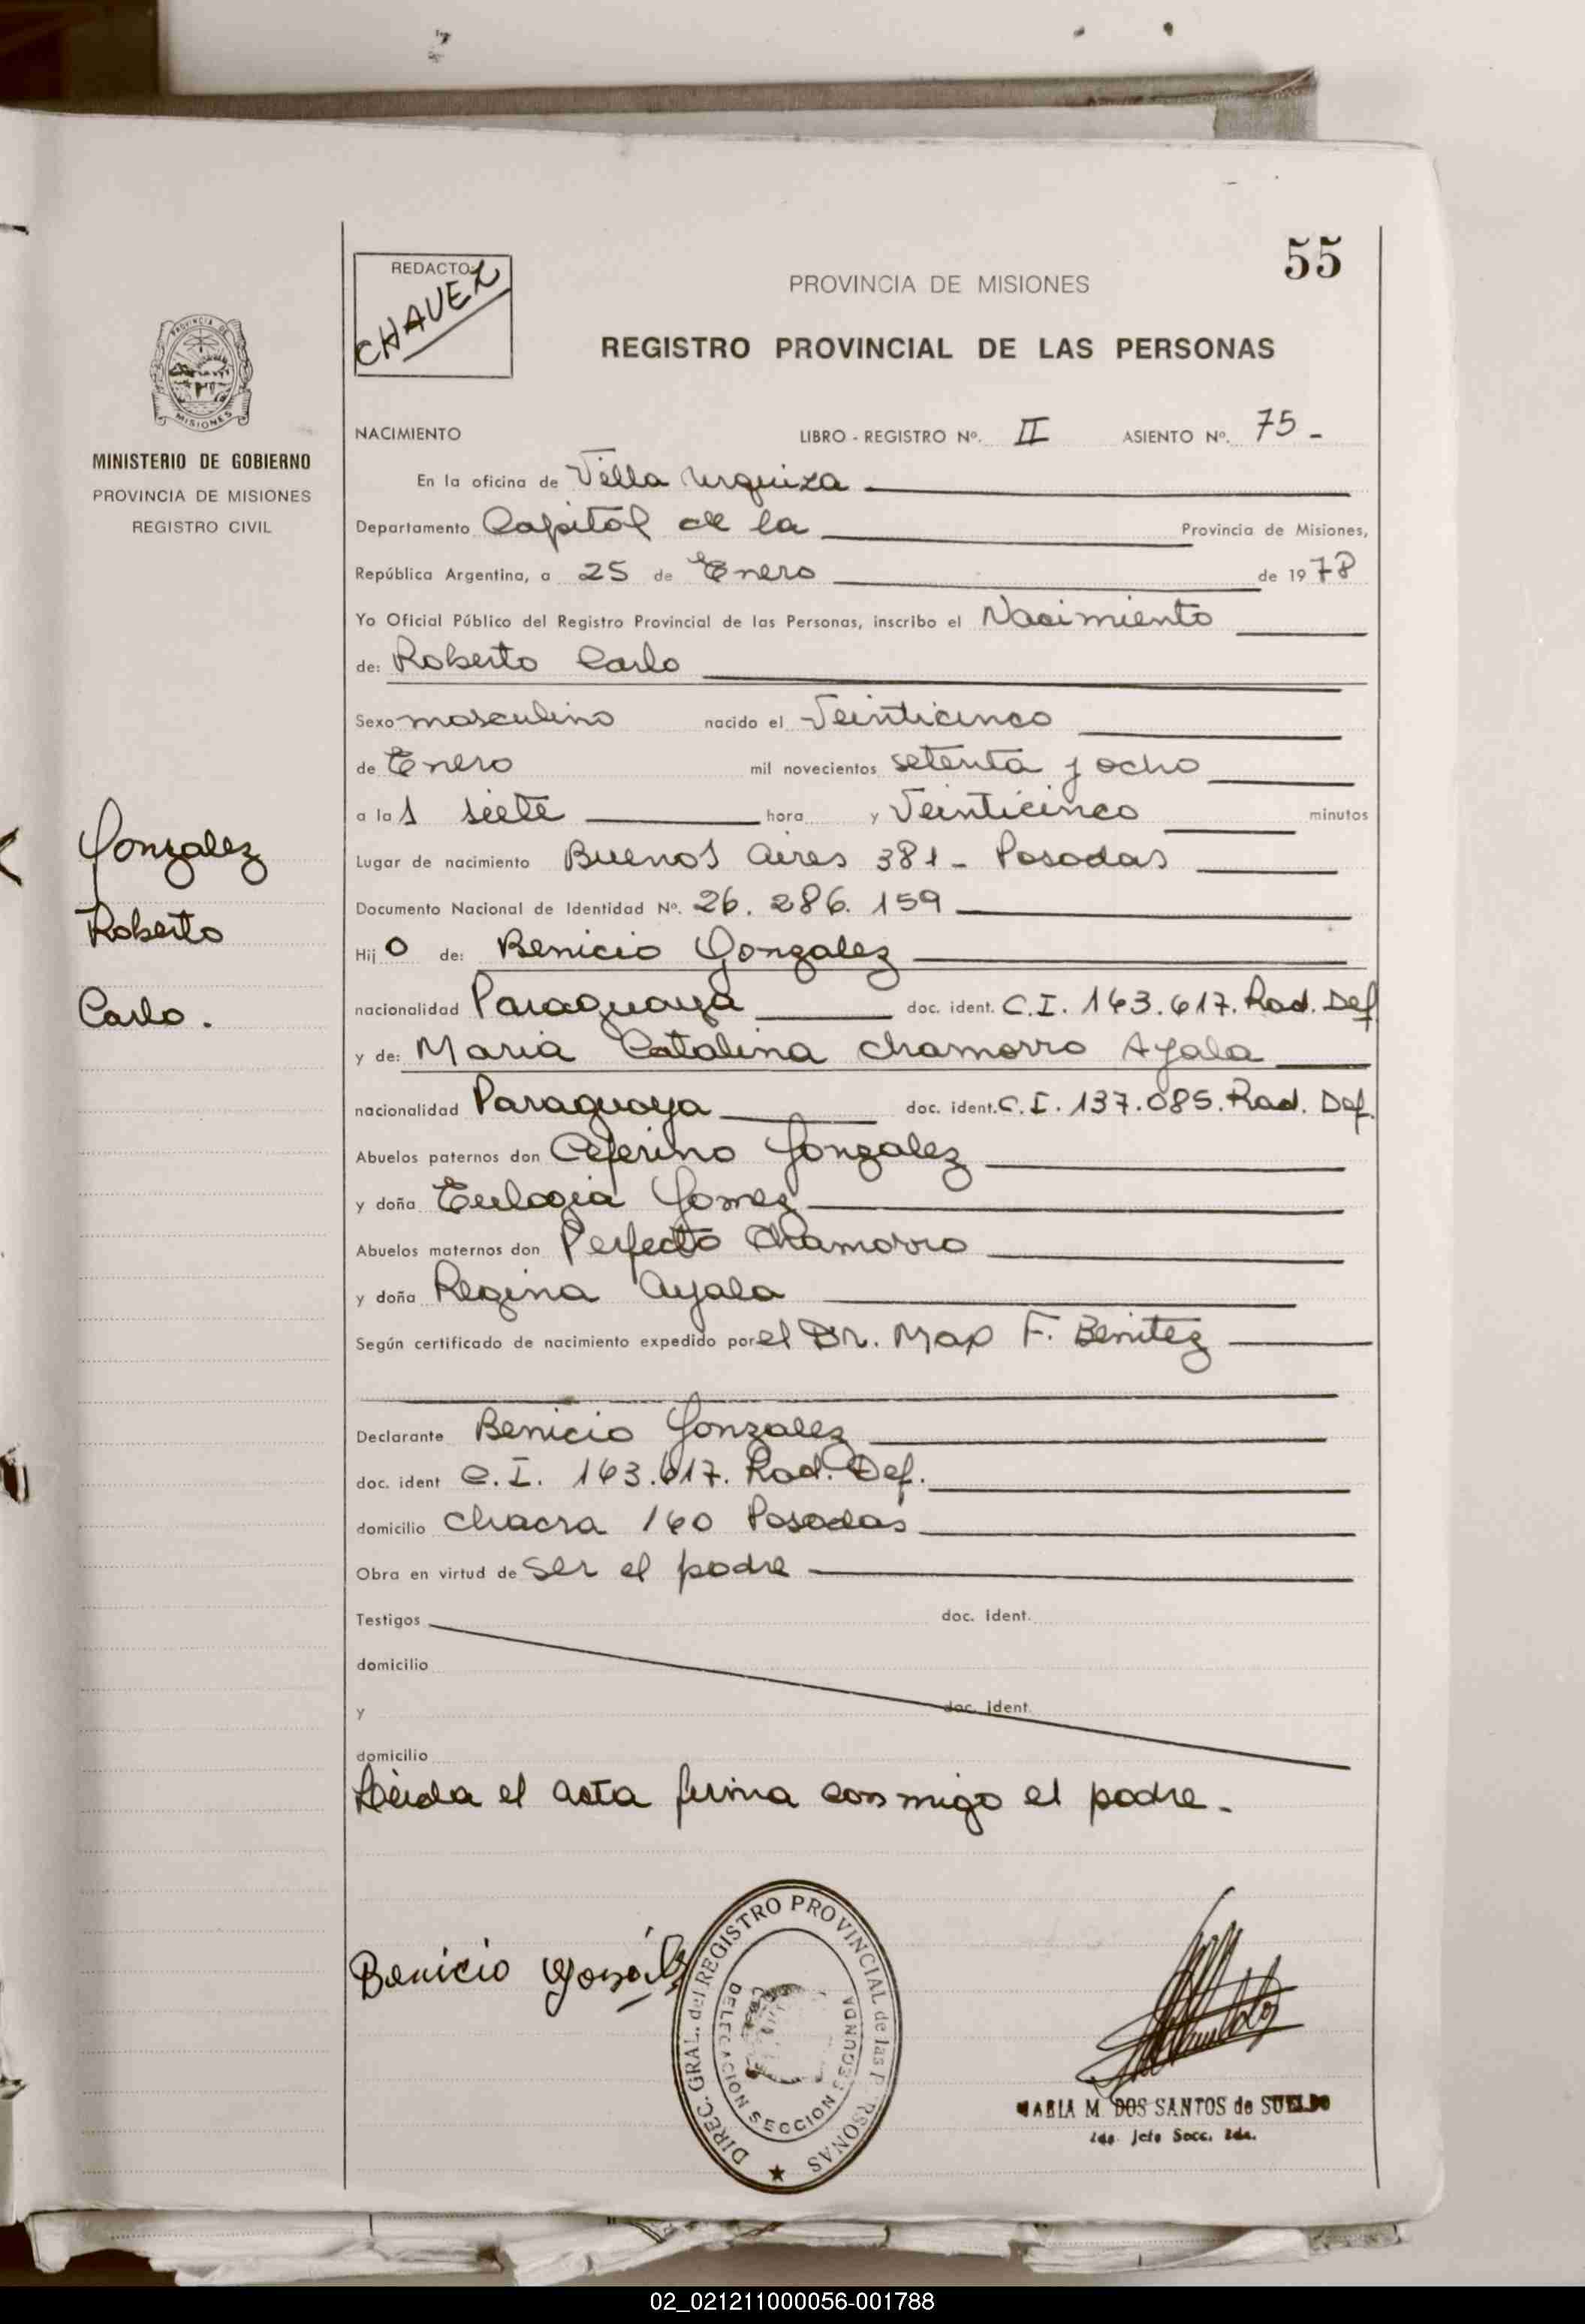 55
REDACTOR
CHAVEZ
PROVINCIA DE MISIONES
REGISTRO PROVINCIAL DE LAS PERSONAS
PROVINCIA DE
MISIONES
MINISTERIO DE GOBIERNO
PROVINCIA DE MISIONES
REGISTRO CIVIL
NACIMIENTO LIBRO - REGISTRO Nº. II ASIENTO Nº. 75 -
En la oficina de Villa Urquiza
Departamento Capital de la Provincia de Misiones,
República Argentina, a 25 de Enero de 1978
Yo Oficial Público del Registro Provincial de las Personas, inscribo el Nacimiento
de: Roberto Carlo
Sexo masculino nacido el Veinticinco
de Enero mil novecientos setenta y ocho
a las siete hora y Veinticinco minutos
Gonzalez
Roberto
Carlo.
Lugar de nacimiento Buenos Aires 381 - Posadas
Documento Nacional de Identidad Nº. 26. 286. 159
Hijo de: Benicio Gonzalez
nacionalidad Paraguaya doc. ident. C.I. 163.617. Rad. Def
y de: Maria Catalina Chamorro Ayala
nacionalidad Paraguaya doc. ident. C.I. 137.085. Rad. Def.
Abuelos paternos don Ceferino Gonzalez
y doña Eulogia Gomez
Abuelos maternos don Perfecto Chamorro
y doña Regina Ayala
Según certificado de nacimiento expedido por el Dr. Max F. Benitez
Declarante Benicio Gonzalez
doc. ident C.I. 163.617. Rad. Def.
domicilio Chacra 160 Posadas
Obra en virtud de ser el padre
Testigos doc. ident.
domicilio
y doc. ident.
domicilio
Leida el acta firma conmigo el padre.
Benicio Gonzalez
DIREC. GRAL. del REGISTRO PROVINCIAL de las PERSONAS
DELEGACION SECCION SEGUNDA
MARIA M. DOS SANTOS de SUELDO
2do. Jefe Secc. 2da.
02_021211000056-001788